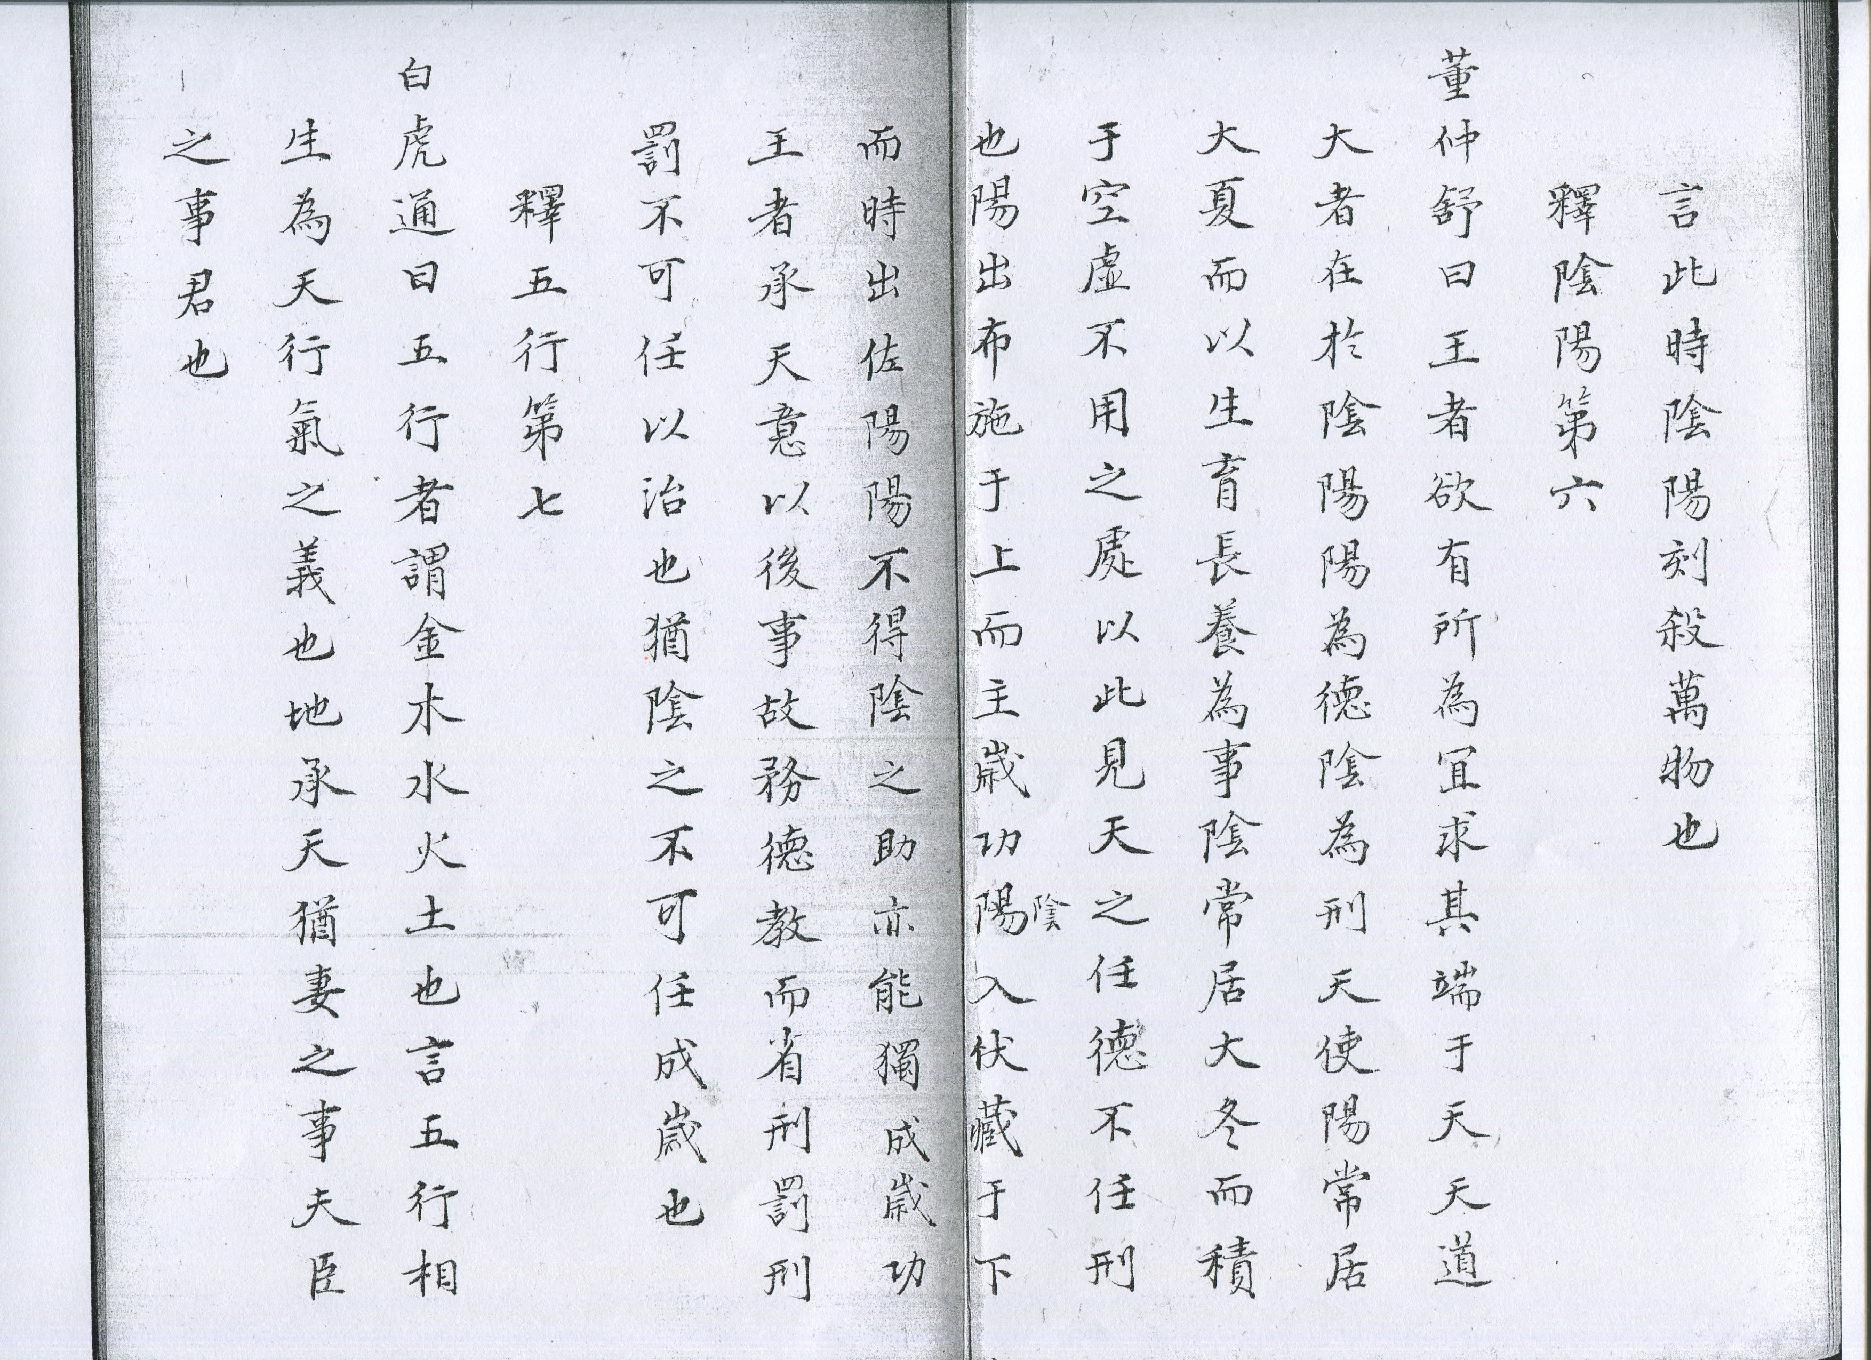 言此時陰陽刻殺萬物也
釋陰陽第六
董仲舒曰王者欲有所為宜求其端于天天道
大者在於陰陽陽為德陰為刑天使陽常居
大夏而以生育長養為事陰常居大冬而積
于空虛不用之處以此見天之任德不任刑
也陽出布施于上而主歲功陽陰入伏藏于下
而時出佐陽陽不得陰之助亦能獨成歲功
王者承天意以後事故務德教而省刑罰刑
罰不可任以治也猶陰之不可任成歲也
釋五行第七
白虎通曰五行者謂金木水火土也言五行相
生為天行氣之義也地承天猶妻之事夫臣
之事君也